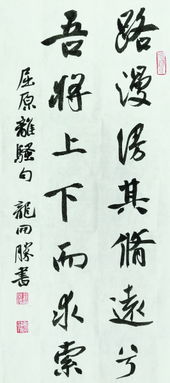 路漫漫其脩遠兮
吾將上下而求索
屈原離騷句 龍四勝書